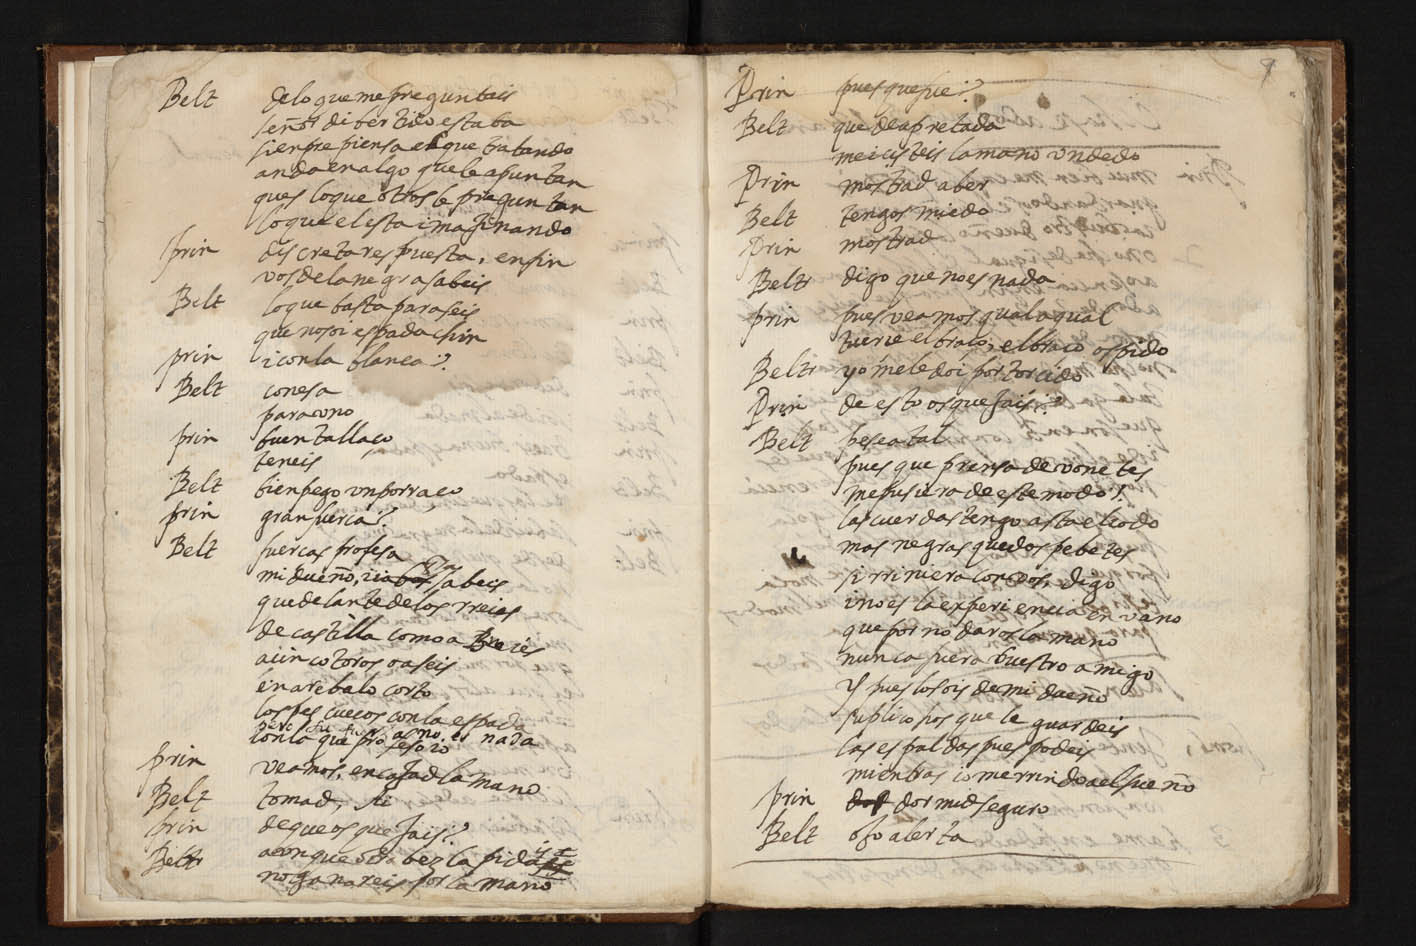 Belt de lo que me preguntais
señor dibertido estaba
sienpre piensa el que tratando
anda en algo que le apuntan
ques lo que otros le preguntan
lo que el esta imaginando
prin discreta respuesta, en fin
vos de la negra sabeis
Belt lo que basta para seis
que no soi espadachin
prin i con la blanca?
Belt con esa
para uno
prin buen tallaço
teneis
Belt bien pego un porraço
prin gran fuerça?
Belt fuerças profesa
mi dueño, sabeis
que delante de los rreies
de castilla como a
a cinco toros o a seis
en arebalo corto
los pescueços con la espada
con la que nada
prin veamos, encajad la mano
Belt tomad,
prin de que os quejais?
Beltr aunque otra bez la pidais
no ganareis por la mano
9
Prin pues que fue?
Belt que de apretada
me icisteis la mano un dedo
Prin mostrad a ber
Belt tengos miedo
Prin mostrad
Beltr digo que no es nada
prin pues veamos qual a qual
tuerce el braço, el braço os pido
Beltr yo me le doi por torcido
Prin de esto os quejais?
Belt pesea tal
pues que prensa de vonetes
me pusiera de este modo!
las cuerdas tengo asta el codo
mas negras quedos pebetes
si rriniera con vos, digo
i no es la experiencia en vano
que por no daros la mano
nunca fuera buestro amigo
y pues lo sois de mi dueño
suplicoos que le guardeis
las espaldas pues podeis
mientras io me rrindo al sueño
prin dormid seguro
Belt ojo alerta